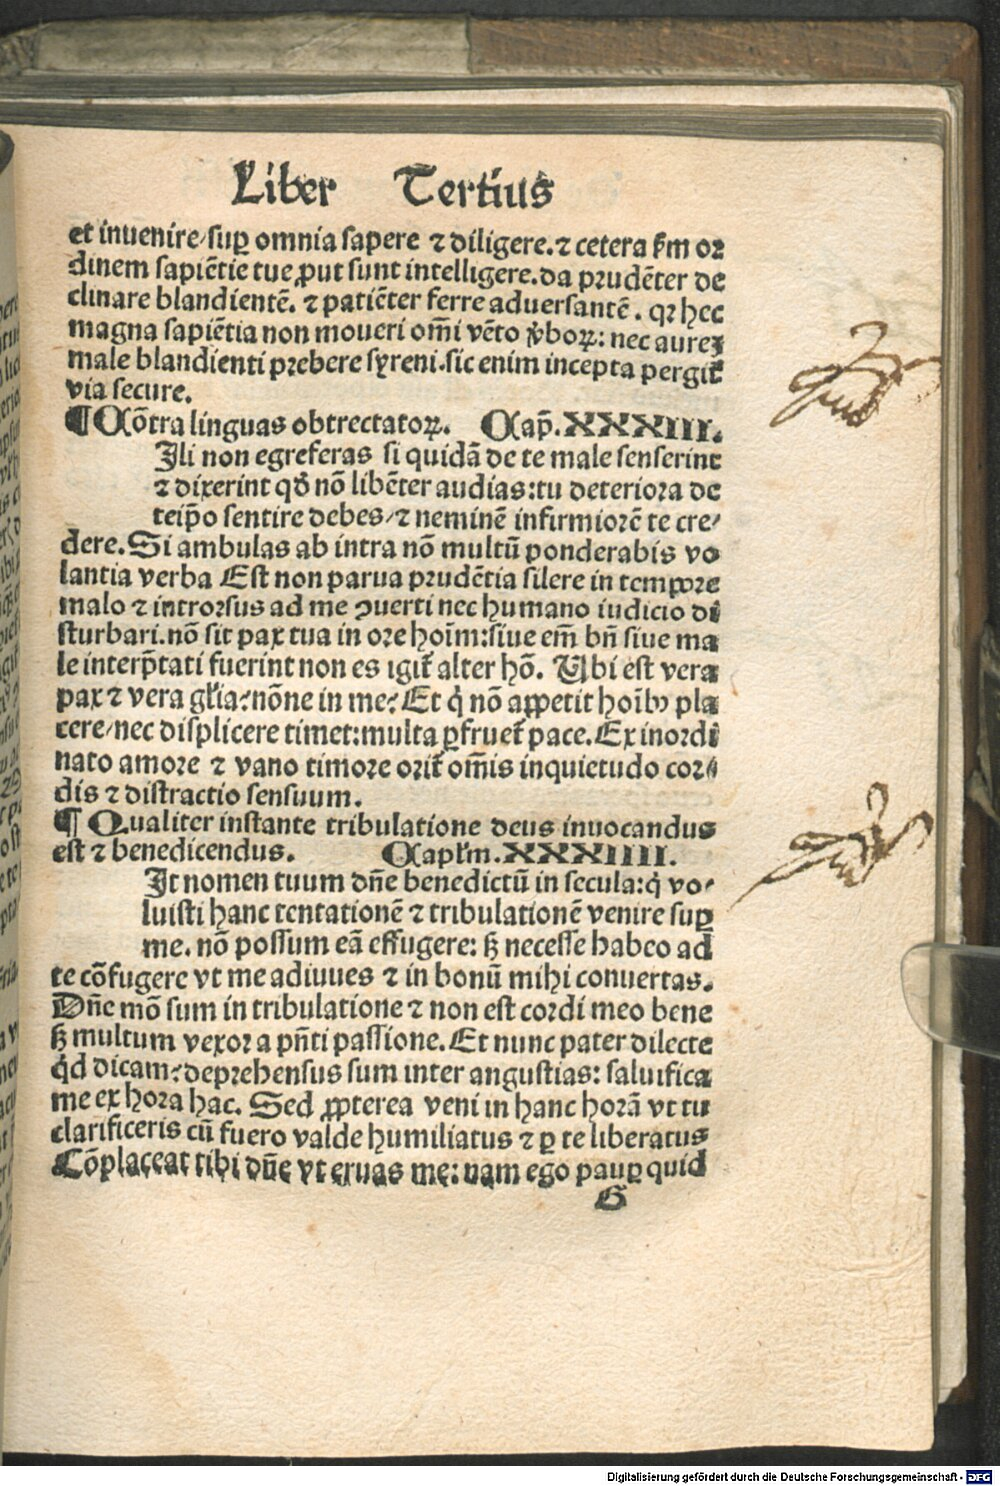 Liber Tertius
et inuenire/suꝑ omnia sapere ⁊ diligere.⁊ cetera ẜm or
dinem sapiẽtie tue ꝓut sunt intelligere.da prudẽter de
clinare blandientẽ. ⁊ patiẽter ferre aduersantẽ. qꝛ hec
magna sapiẽtia non moueri om̃i vẽto v̾boꝝ: nec aureʒ
male blandienti prebere syreni.sic enim incepta pergit᷑
via secure.
¶ Cõtra linguas obtrectatoꝝ. Cap̃.XXXIII.
Ili non egreferas si quidã de te male senserint
⁊ dixerint qđ nõ libẽter audias:tu deteriora de
teip̃o sentire debes/⁊ neminẽ infirmiorẽ te cre/
dere.Si ambulas ab intra nõ multũ ponderabis vo
lantia verba Est non parua prudẽtia silere in tempore
malo ⁊ introrsus ad me ꝯuerti nec humano iudicio di
sturbari.nõ sit pax tua in ore hoĩm:siue em̃ bñ siue ma
le interp̃tati fuerint non es igit᷑ alter hõ. Ubi est vera
pax ⁊ vera gl̃ia?nõne in me? Et q̇ nõ appetit hoĩbꝫ pla
cere/nec displicere timet:multa ꝑfruet᷑ pace.Ex inordi
nato amore ⁊ vano timore orit᷑ om̃is inquietudo cor/
dis ⁊ distractio sensuum.
¶ Qualiter instante tribulatione deus inuocandus
est ⁊ benedicendus. Capl̃m.XXXIIII.
It nomen tuum dñe benedictũ in secula:q̇ vo/
luisti hanc tentationẽ ⁊ tribulationẽ venire suꝑ
me. nõ possum eã effugere: sꝫ necesse habeo ad
te cõfugere vt me adiuues ⁊ in bonũ mihi conuertas.
Dñe mõ sum in tribulatione ⁊ non est cordi meo bene
sꝫ multum vexor a pñti passione. Et nunc pater dilecte
q̇d dicam?deprehensus sum inter angustias: saluifica
me ex hora hac. Sed ꝓpterea veni in hanc horã vt tu
clarificeris cũ fuero valde humiliatus ⁊ ꝑ te liberatus
Cõplaceat tibi dñe vt eruas me: nam ego pauꝑ quid
G
Digitalisierung gefördert durch die Deutsche Forschungsgemeinschaft - DFG